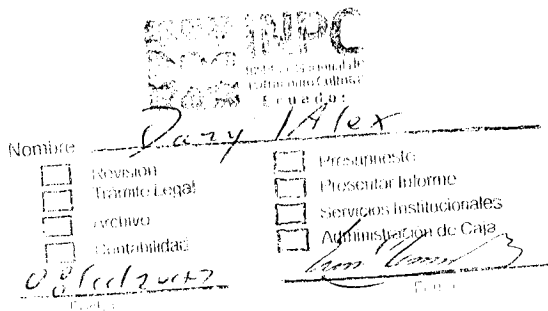 INPC
Instituto Nacional de
Patrimonio Cultural
Ecuador
Nombre Dary / Alex
Revisión
Trámite Legal
Archivo
Contabilidad
Presupuesto
Presentar Informe
Servicios Institucionales
Administración de Caja
Fecha
Firma